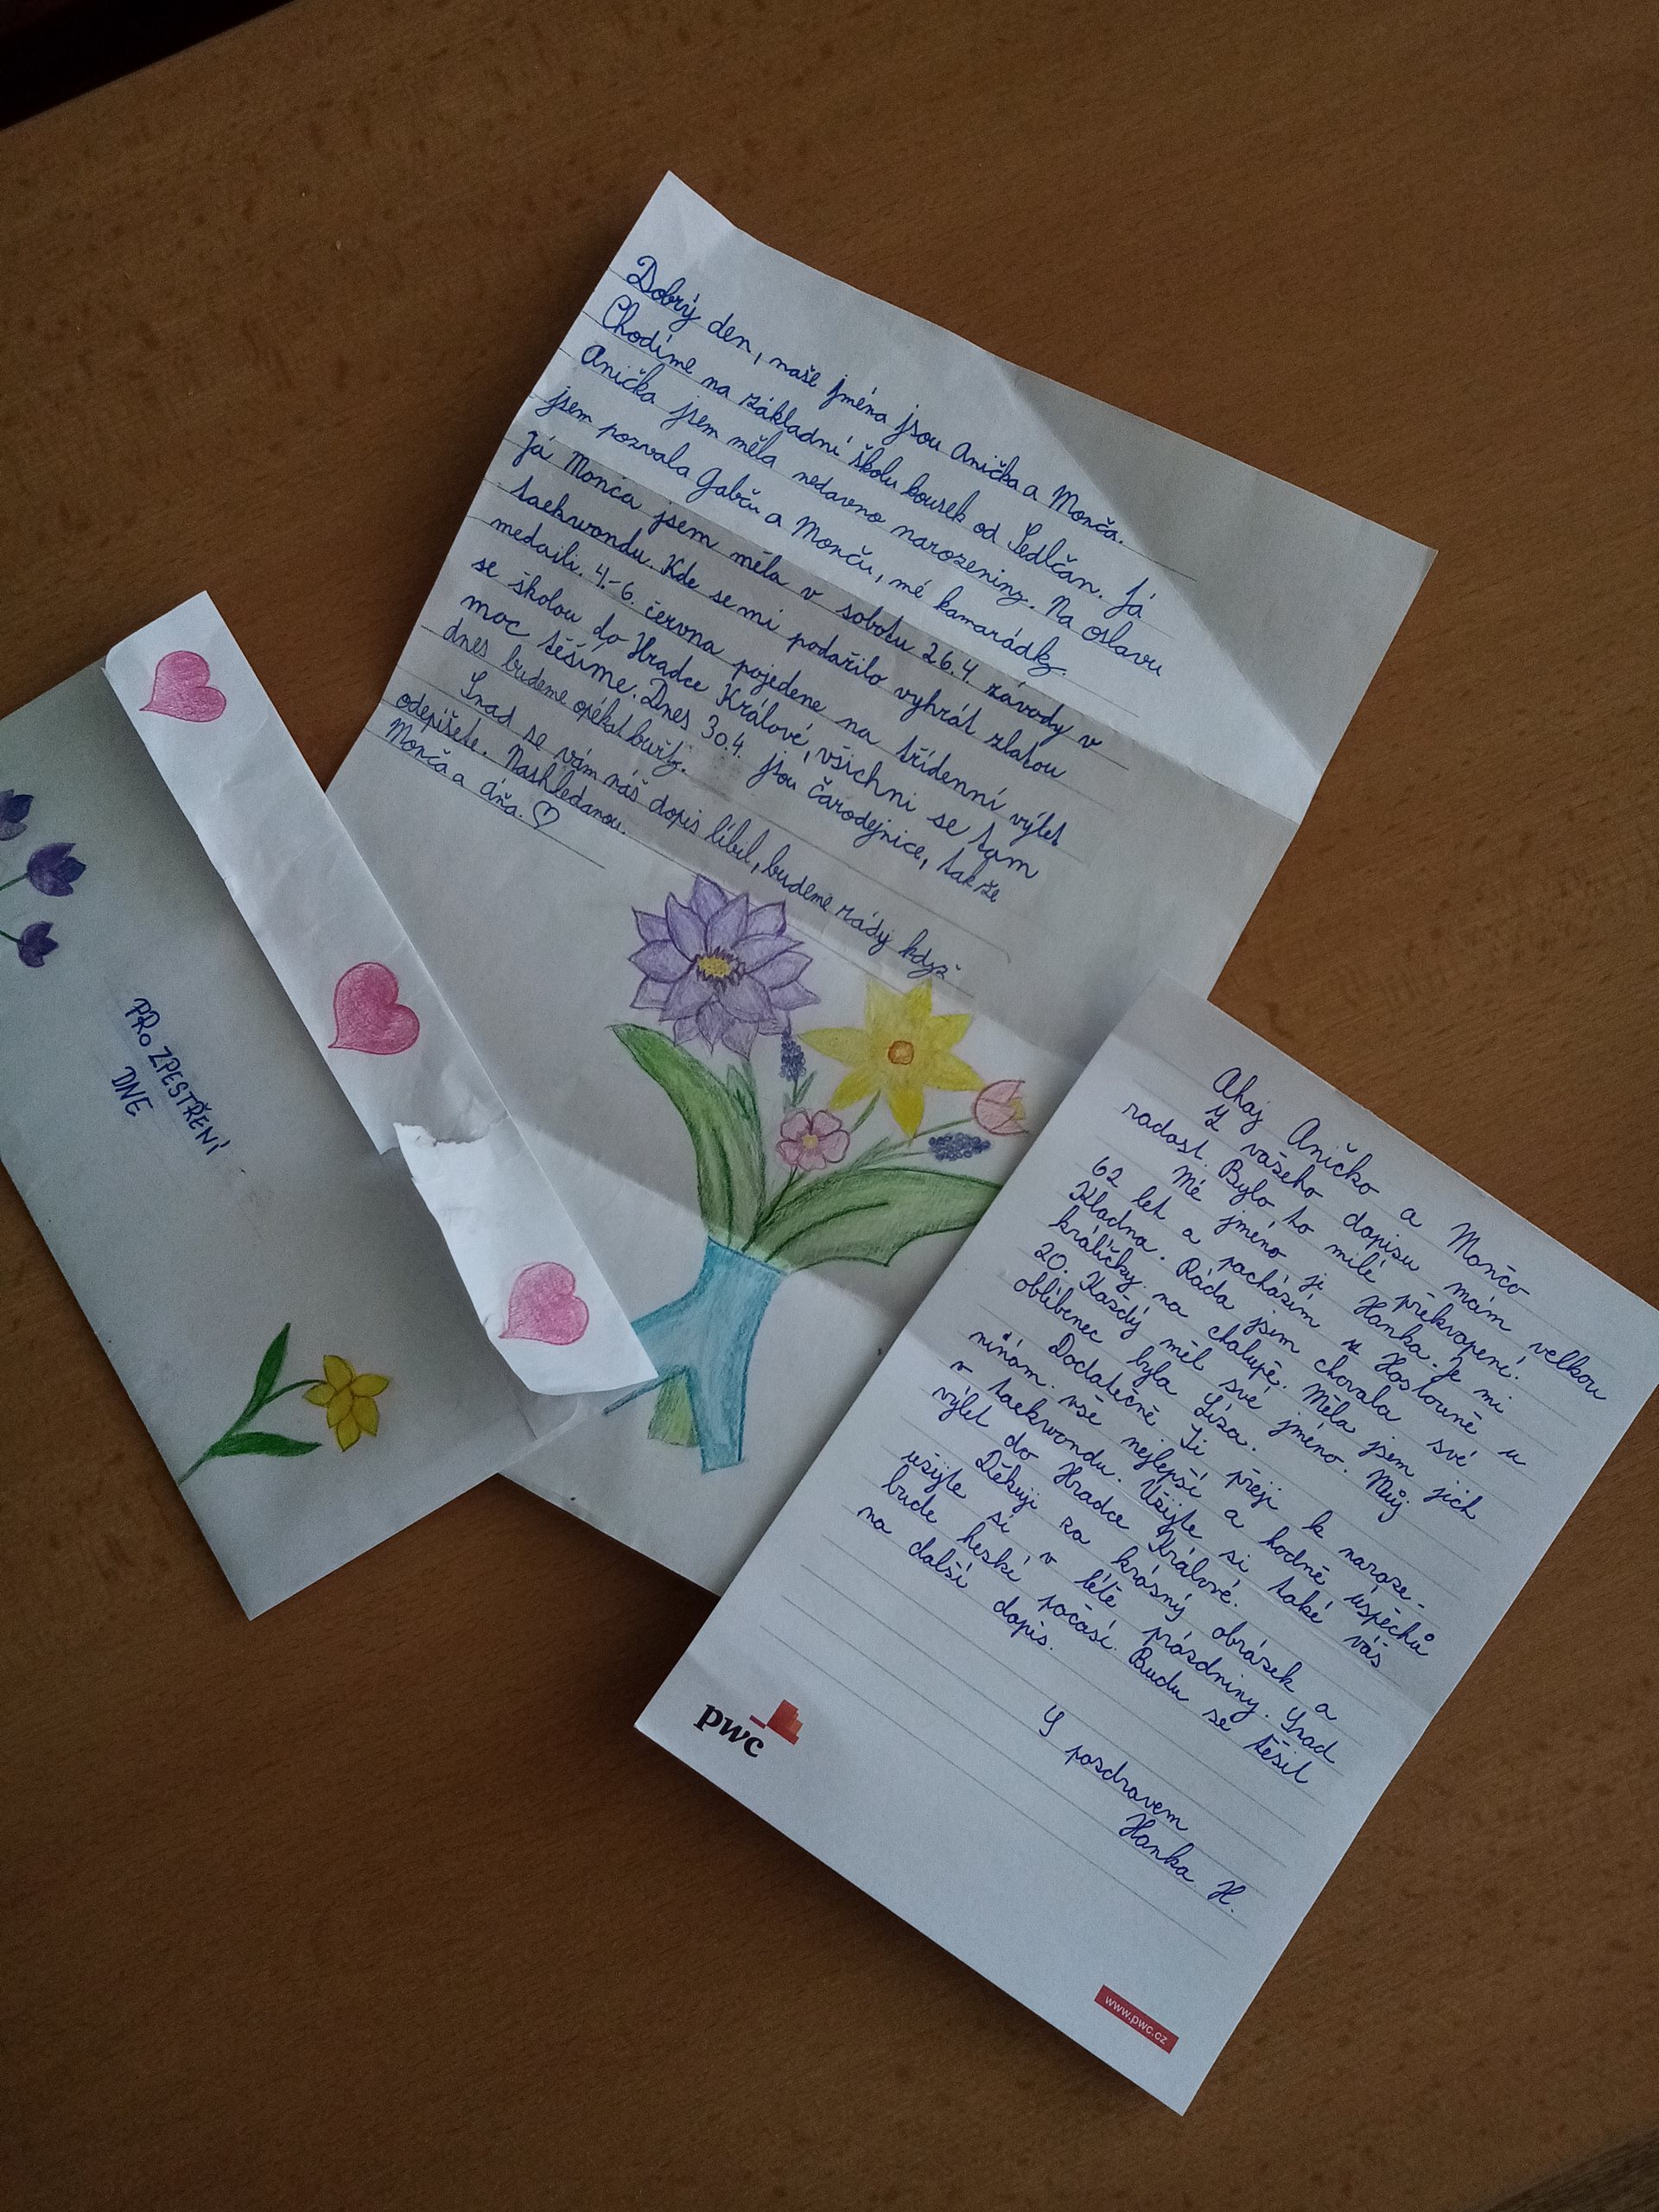 PRO ZPESTŘENÍ
DNE
Dobrý den, naše jména jsou Anička a Monča.
Chodíme na základní školu kousek od Sedlčan. Já
Anička jsem měla nedavno narozeniny. Na oslavu
jsem pozvala Gabču a Monču, mé kamarádky.
Já Monča jsem měla v sobotu 26.4. závody v
taekwondu. Kde se mi podařilo vyhrát zlatou
medaili. 4.-6. června pojedene na třídenní výlet
se školou do Hradce Králové, všichni se tam
moc těšíme. Dnes 30.4. jsou čarodejnice, takže
dnes budeme opékat buřty.
Snad se vám náš dopis líbil, budeme rády když
odepíšete. Nashledanou.
Monča a Áňa. ♡
Ahoj Aničko a Mončo
Z vašeho dopisu mám velkou
radost. Bylo to milé překvapení.
Mé jméno je Hanka. Je mi
62 let a pocházím z Hostouně u
Kladna. Ráda jsem chovala své
králíčky na chalupě. Měla jsem jich
20. Každý měl své jméno. Můj
oblíbenec byla Líza.
Dodatečně Ti přeji k naroze-
ninám vše nejlepší a hodně úspěchů
v taekwondu. Užijte si také váš
výlet do Hradce Králové.
Děkuji za krásný obrázek a
užijte si v létě prázdniny. Snad
bude heské počasí. Budu se těšit
na další dopis.
S pozdravem
Hanka H.
pwc
www.pwc.cz